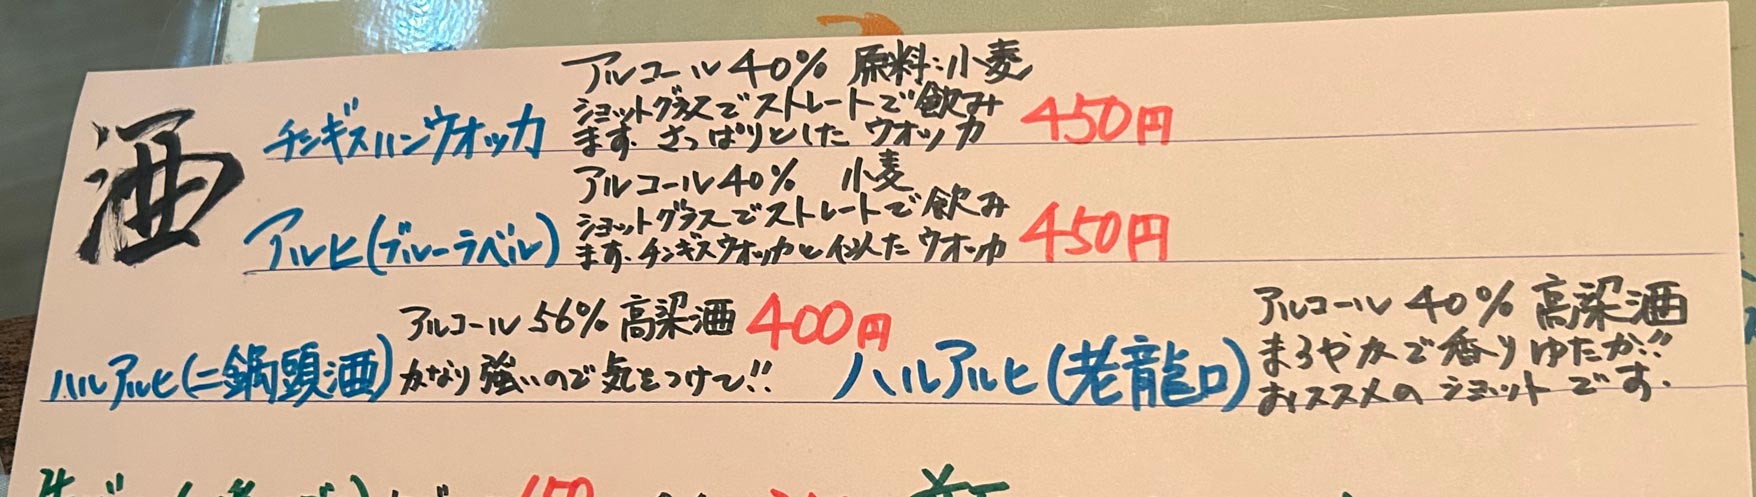 酒
チンギスハンウオッカ
アルコール40% 原料:小麦
ショットグラスでストレートで飲み
ます. さっぱりとした ウオッカ
450円
アルヒ(ブルーラベル)
アルコール40% 小麦
ショットグラスでストレートで飲み
ます. チンギスウオッカと似た ウオッカ
450円
ハルアルヒ(二鍋頭酒)
アルコール 56% 高梁酒
かなり強いので気をつけて!!
400円
ハルアルヒ(老龍口)
アルコール 40% 高梁酒
まろやかで香りゆたか!!
おススメの ショット です.